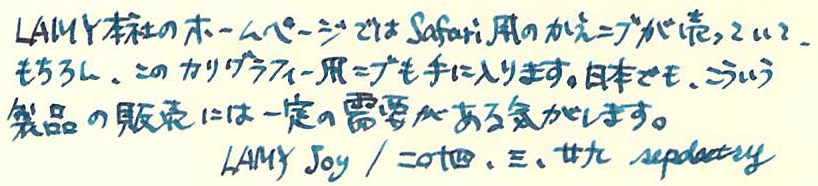 LAMY本社のホームページではSafari用のかえニブが売っていて、
もちろん、このカリグラフィー用ニブも手に入ります。日本でも、こういう
製品の販売には一定の需要がある気がします。
LAMY Joy / 二〇廿四、三、廿九